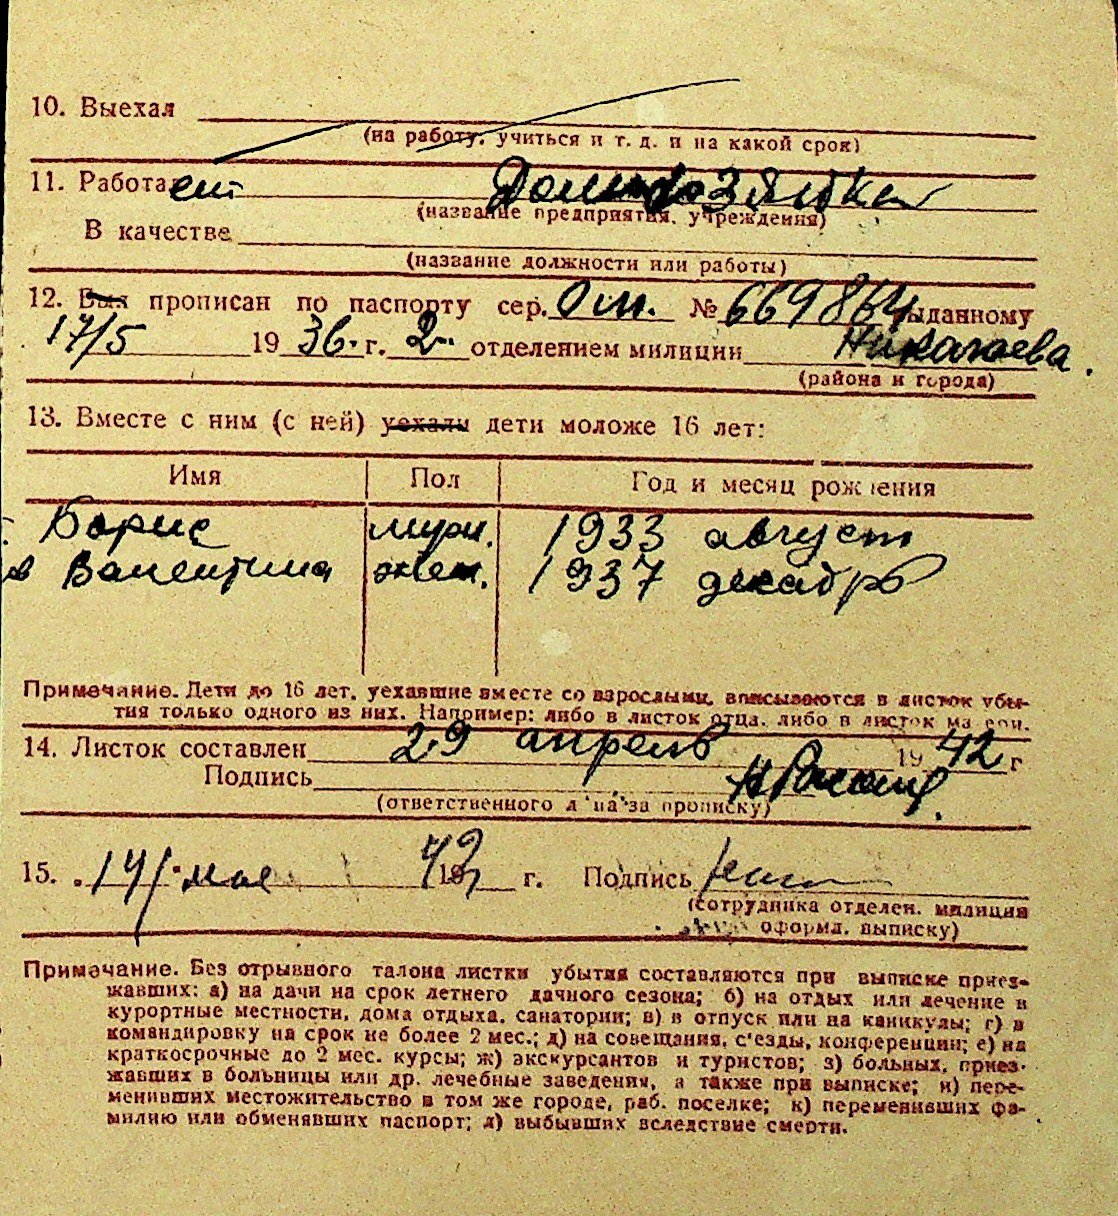 10. Выехал
(на работу, учиться и т. д. и на какой срок)
11. Работает Домохозяйка
(название предприятия, учреждения)
В качестве
(название должности или работы)
12. Был прописан по паспорту сер. № 669864 выданному
17/5 1936 г. 2. отделением милиции Николаева.
(района и города)
13. Вместе с ним (с ней) уехали дети моложе 16 лет:
Имя Пол Год и месяц рождения
Борис муж. 1933 август
Валентина жен. 1937 декабрь
Примечание. Дети до 16 лет, уехавшие вместе со взрослыми, вписываются в листок убы-
тия только одного из них. Например: либо в листок отца, либо в листок матери.
14. Листок составлен 29 апреля 1942 г
Подпись
(ответственного лица за прописку)
15. 14/ мая 1942 г. Подпись
(сотрудника отделен. милиции
оформл. выписку)
Примечание. Без отрывного талона листки убытия составляются при выписке приез-
жавших: а) на дачи на срок летнего дачного сезона; б) на отдых или лечение в
курортные местности, дома отдыха, санатории; в) в отпуск или на каникулы; г) в
командировку на срок не более 2 мес.; д) на совещания, с'езды, конференции; е) на
краткосрочные до 2 мес. курсы; ж) экскурсантов и туристов; з) больных, приез-
жавших в больницы или др. лечебные заведения, а также при выписке; и) пере-
менивших местожительство в том же городе, раб. поселке; к) переменивших фа-
милию или обменявших паспорт; л) выбывших вследствие смерти.